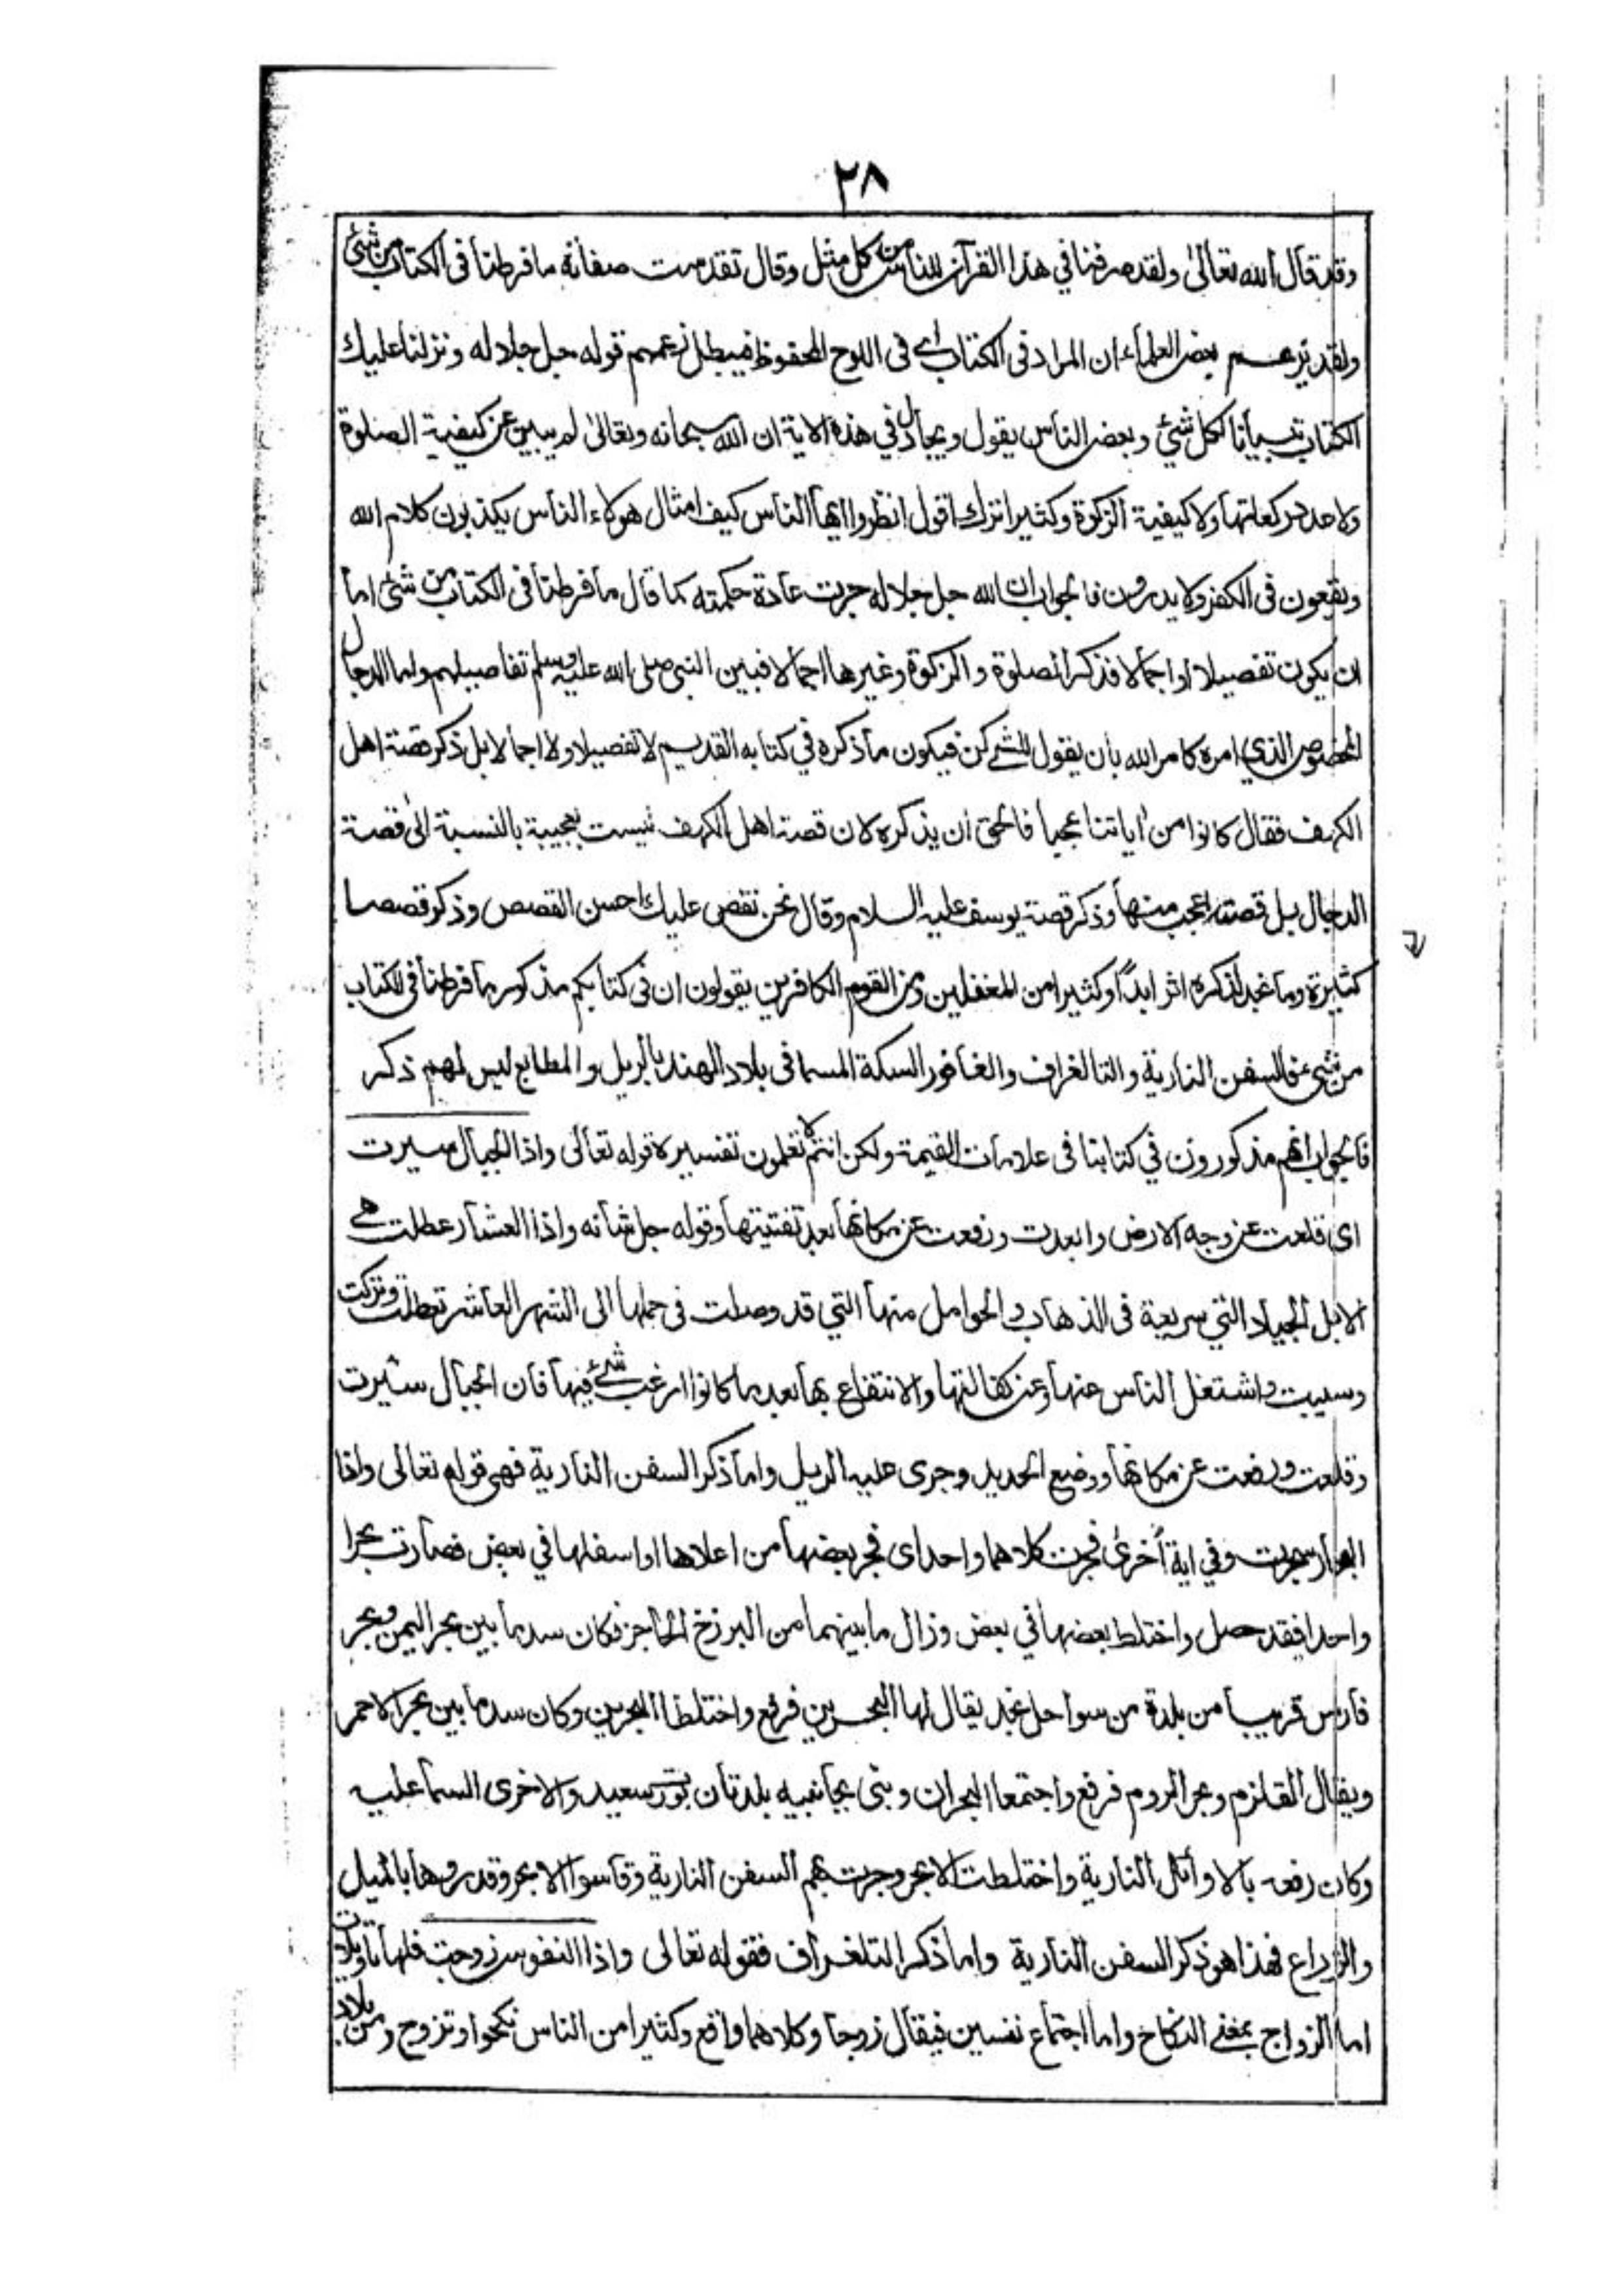 ٢٨
وقد قال الله تعالىٰ ولقد صرفنا في هذا القرآن للناس من كل مثل وقال تقدمت صفاته ما فرطنا فى الكتاب من شئ
ولقد يزعم بعض العلماء ان المراد فى الكتاب اى فى اللوح المحفوظ فيبطل زعمهم قوله جل جلاله ونزلنا عليك
الكتاب تبيانا لكل شئ وبعض الناس يقول ويجادل في هذه الاية ان الله سبحانه وتعالىٰ لم يبين عن كيفية الصلوة
ولا عدد ركعاتها ولا كيفية الزكوة وكثيرا ترك اقول انظروا ايها الناس كيف امثال هولاء الناس يكذبون كلام الله
ويقعون فى الكفر ولا يدرون فالجواب ان الله جل جلاله جرت عادة حكمته كما قال ما فرطنا فى الكتاب من شئ اما
ان يكون تفصيلا او اجمالا فذكر الصلوة والزكوة وغيرها اجمالا فبين النبى صلى الله عليه وسلم تفاصيلهم ولما الدجال
المخصوص الذي امره كامر الله بان يقول للشئ كن فيكون ما ذكره في كتابه القديم لا تفصيلا ولا اجمالا بل ذكر قصة اهل
الكهف فقال كانوا من اياتنا عجبا فالحق ان يذكره لان قصة اهل الكهف ليست بعجيبة بالنسبة الىٰ قصة
الدجال بل قصته اعجب منها وذكر قصة يوسف عليه السلام وقال نحن نقص عليك احسن القصص وذكر قصصا
كثيرة وما نجد لذكره اثر ابدًا وكثيرا من المغفلين ومن القوم الكافرين يقولون ان فى كتابكم مذكور ما فرطنا فى الكتاب
من شئ عن السفن النارية والتالغراف والغافور السكة المسما فى بلاد الهند بالريل والمطابع ليس لهم ذكر
فالجواب انهم مذكورون في كتابنا فى علامات القيمة ولكن انتم لا تعلمون تفسيره قوله تعالى واذا الجبال سيرت
اى قلعت عن وجه الارض وابعدت ورفعت عن مكانها بعد تفتيتها وقوله جل شانه واذا العشار عطلت هے
الابل الجياد التي سريعة فى الذهاب والحوامل منها التي قد وصلت فى حملها الى الشهر العاشر تعطلت وتركت
وسيبت واشتغل الناس عنها وعن كفالتها والانتفاع بها بعد ما كانوا ارغب شئ فيها فان الجبال سيرت
وقلعت ورفعت عن مكانها ووضع الحديد وجرى عليه الريل واما ذكر السفن النارية فهى قوله تعالى واذا
البحار سجرت وفي اية أخرىٰ فجرت كلاهما واحد اى فجر بعضها من اعلاها او اسفلها في بعض فصارت بحرا
واحدا فقد حصل واختلط بعضها في بعض وزال ما بينهما من البرزخ الحاجز فكان سد ما بين بحر اليمن وبحر
فارس قريبا من بلدة من سواحل نجد يقال لها البحرين فرفع واختلطا البحرين وكان سد ما بين بحر الاحمر
ويقال القلزم وبحر الروم فرفع واجتمعا البحران وبنى بجانبيه بلدتان بورت سعيد والاخرى السماعليه
وكان رفعه بالاوائل النارية واختلطت الابحر وجرت بهم السفن النارية وقاسوا الابحر وقدروها بالميل
والذراع فهذا هو ذكر السفن النارية واما ذكر التلغراف فقوله تعالى واذا النفوس زوجت فلها تاويلات
اما الزواج بمعنے النكاح واما اجتماع نفسين فيقال زوجا وكلاهما واقع وكثيرا من الناس نكحوا وتزوج ومن بلاد